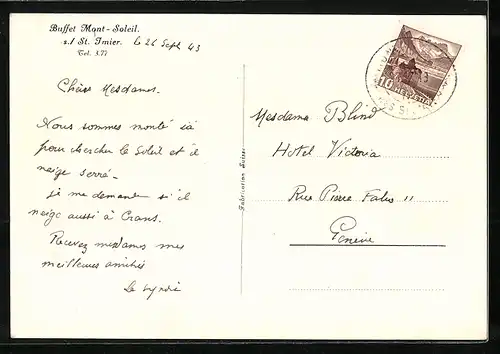 Buffet Mont-Soleil.
s./ St. Imier. le 26 Sept 43
Tel. 3.77
Chères Mesdames.
Nous sommes monté ià
pour chercher le Soleil et il
neige serré.
je me demande si il
neige aussi à Crans.
Recevez mesdames mes
meilleures amitiés
Fabrication Suisse
10 HELVETIA
Mesdames Blind
Hotel Victoria
Rue Pierre Fatio 11
Genève